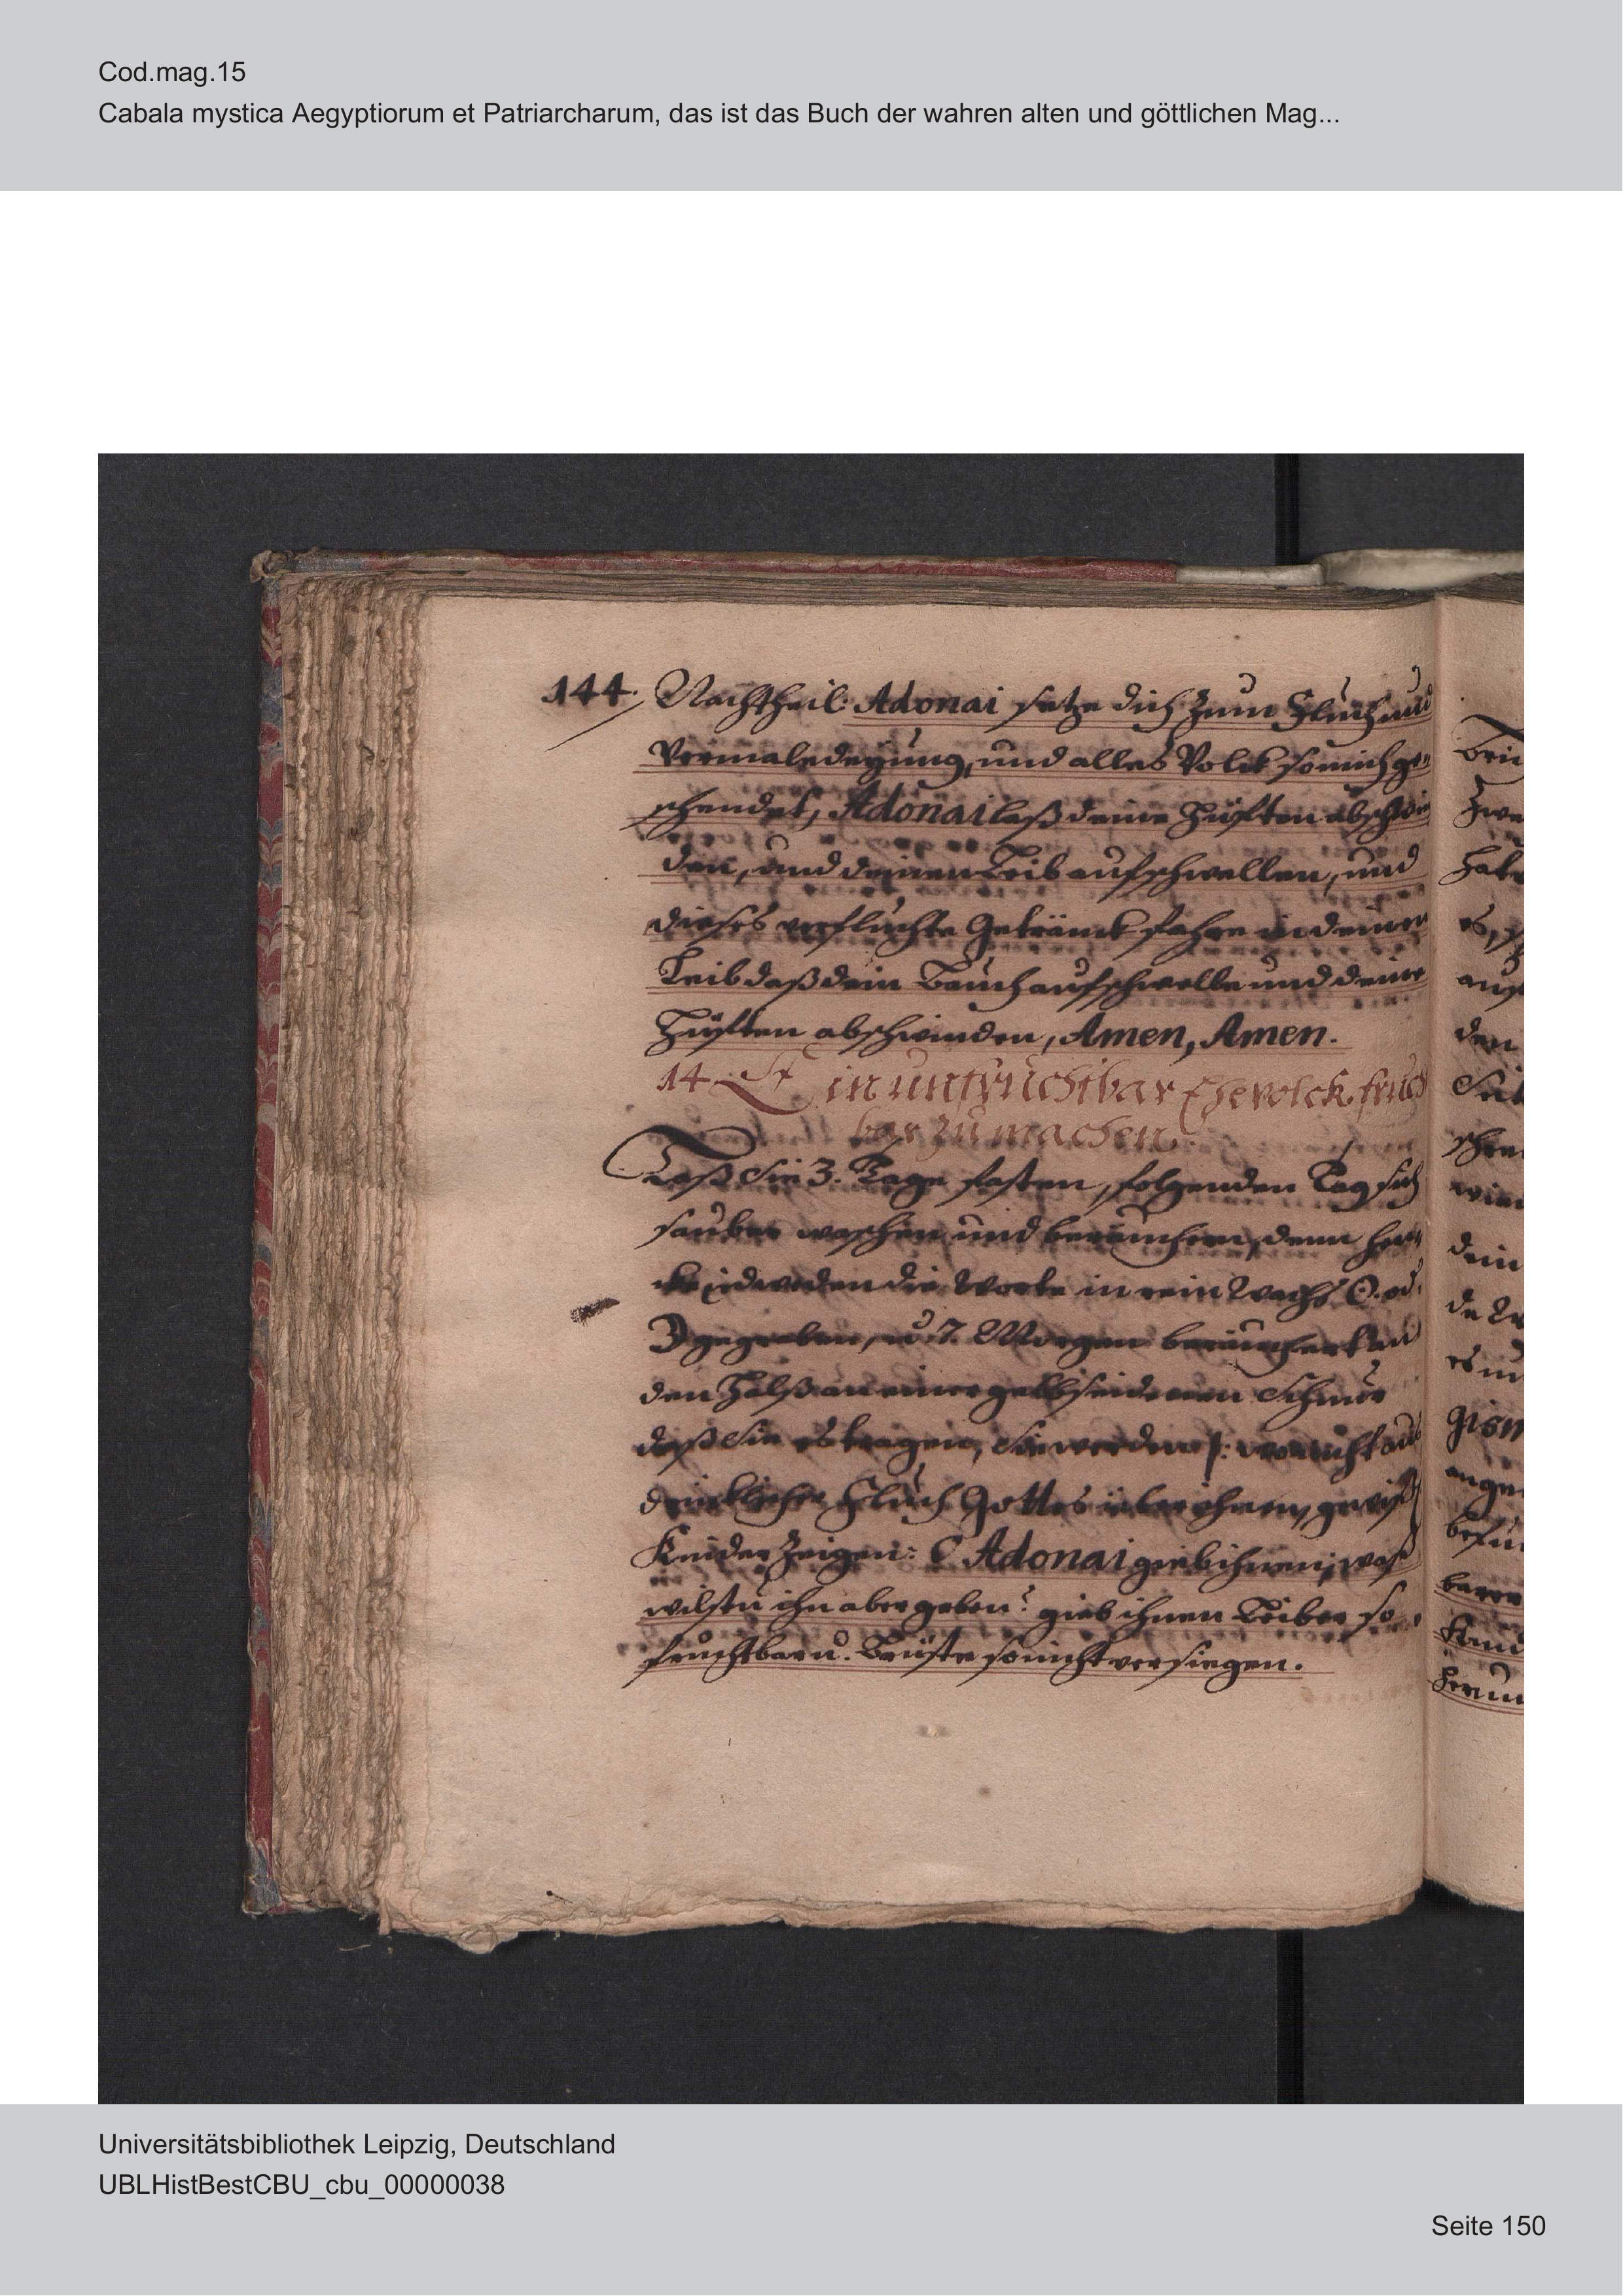 Cod.mag.15
Cabala mystica Aegyptiorum et Patriarcharum, das ist das Buch der wahren alten und göttlichen Mag...
144. Nachtheil Adonai setze dich zum Fluch und
Vermaledeyung, und alles Volck so mich ge-
schendet, Adonai laß deine Hüften abschwin
den, und deinen Leib aufschwellen, und
dieses verfluchte Getränck fahre in deinen
Leib daß dein Bauch aufschwelle und deine
Hüften abschwinden, Amen, Amen.
14. Ein unfruchtbar Ehevolck frucht
bar zu machen.
Laß Sie 3. Tage fasten, folgenden Tag sich
sauber waschen und beräuchern, denn hen-
cke jedweden die Worte in rein Wachs ☉. od.
☽ gegraben, u. 7. Morgen beräuchert an
den Halß an einer gelbseidenen Schnur
daß Sie es tragen, Sie werden /: wo nicht aus
drücklicher Fluch Gottes über ihnen, gewiß
Kinder zeigen: O Adonai gieb ihnen, was
wilstu ihn aber geben? gieb ihnen Leiber so
fruchtbar u. Brüste so nicht versiegen.
Universitätsbibliothek Leipzig, Deutschland
UBLHistBestCBU_cbu_00000038
Seite 150